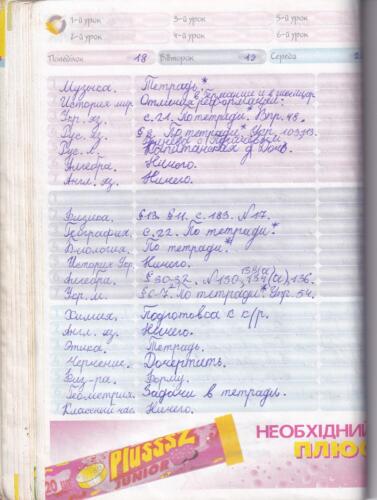 1-й урок 3-й урок 5-й урок
2-й урок 4-й урок 6-й урок
Понеділок 18 Вівторок 19 Середа
Музыка. Тетрадь.*
в Германии и в
История мир. Отличия реформации.
Укр. яз. с.21. По тетради.* Впр. 48.
Рус. яз. По тетради.* Упр. 103,113.
Рус. л.
Алгебра. Ничего.
Англ. яз. Ничего.
Физика. §13. §11. с. 183. №17.
География. с. 22. По тетради.*
Биология. По тетради.*
История Укр. Ничего.
Алгебра. § 30-32. №130, 134(а), 136.
Укр. л. § 6-7. По тетради.* Упр. 54.
Химия. Подготовка к к/р.
Англ. яз. Ничего.
Этика. Тетрадь.
Черчение. Дочертить.
Физ-ра. Форму.
Геометрия. Задачи в тетради.
Классный час. Ничего.
PLUSSSZ
JUNIOR
20
НЕОБХІДНИЙ
ПЛЮС